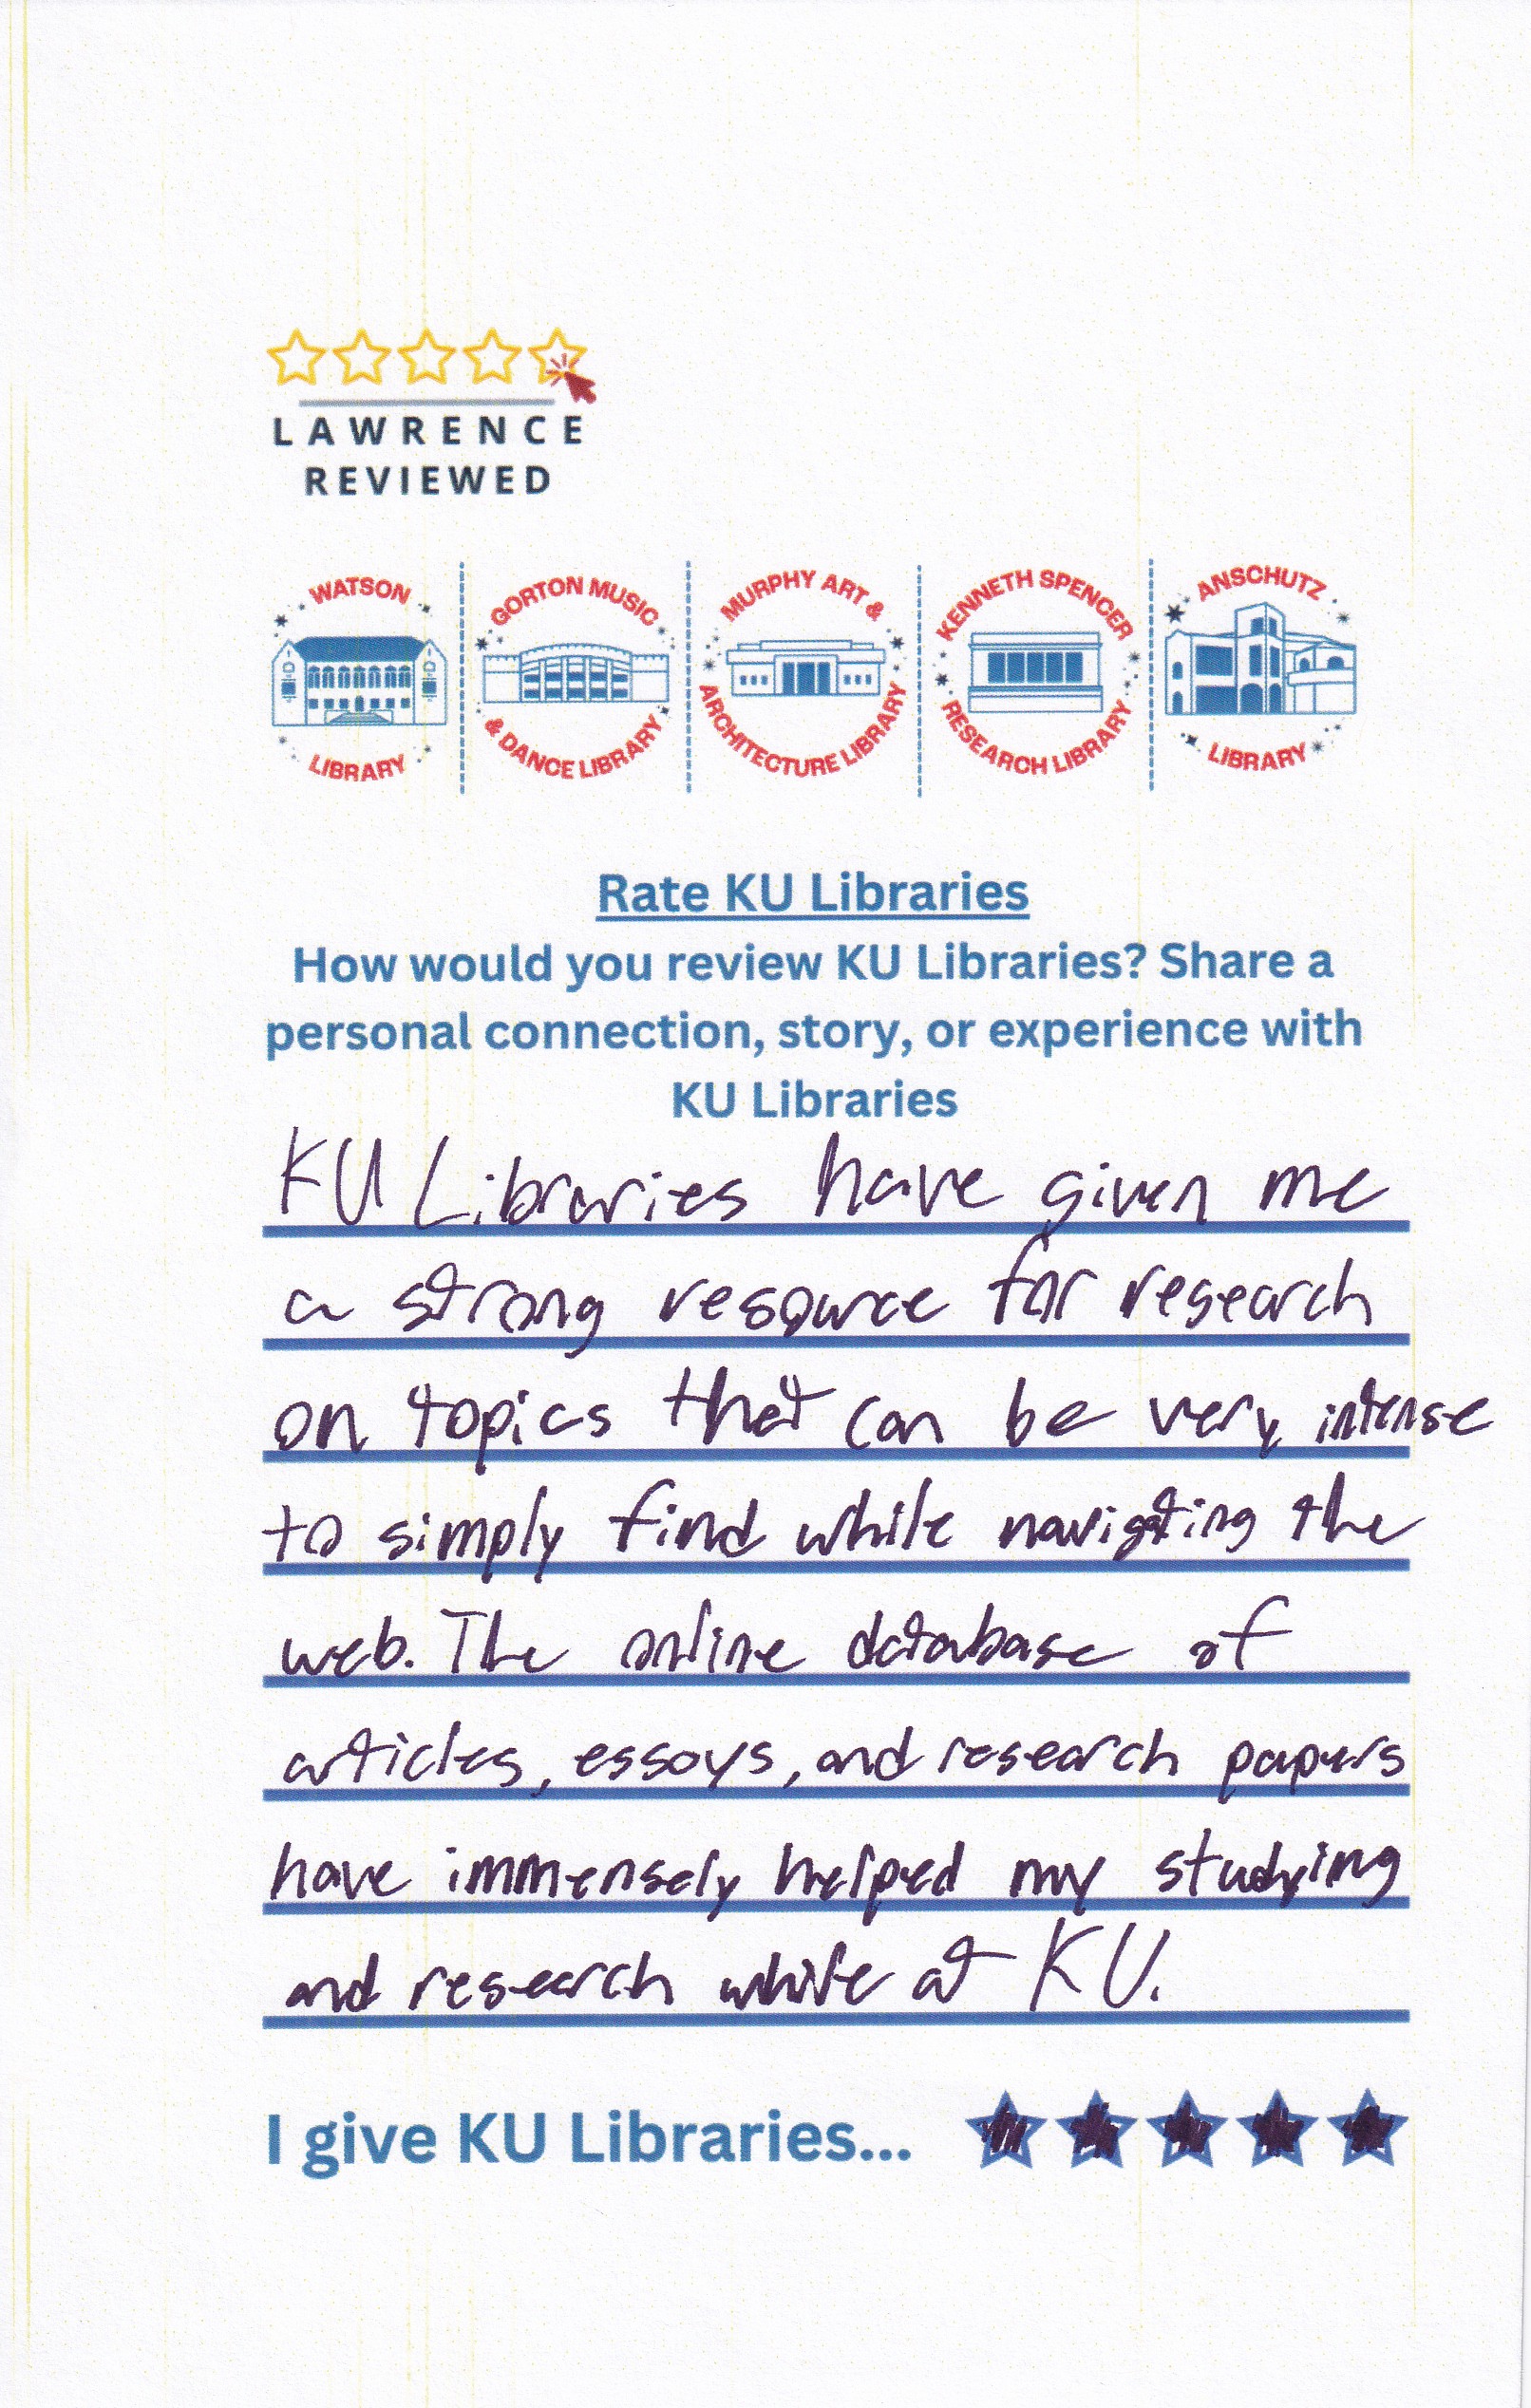 LAWRENCE
REVIEWED
WATSON LIBRARY
GORTON MUSIC & DANCE LIBRARY
MURPHY ART & ARCHITECTURE LIBRARY
KENNETH SPENCER RESEARCH LIBRARY
ANSCHUTZ LIBRARY
Rate KU Libraries
How would you review KU Libraries? Share a
personal connection, story, or experience with
KU Libraries
KU Libraries have given me
a strong resource for research
on topics that can be very intense
to simply find while navigating the
web. The online database of
articles, essays, and research papers
have immensely helped my studying
and research while at KU.
I give KU Libraries...